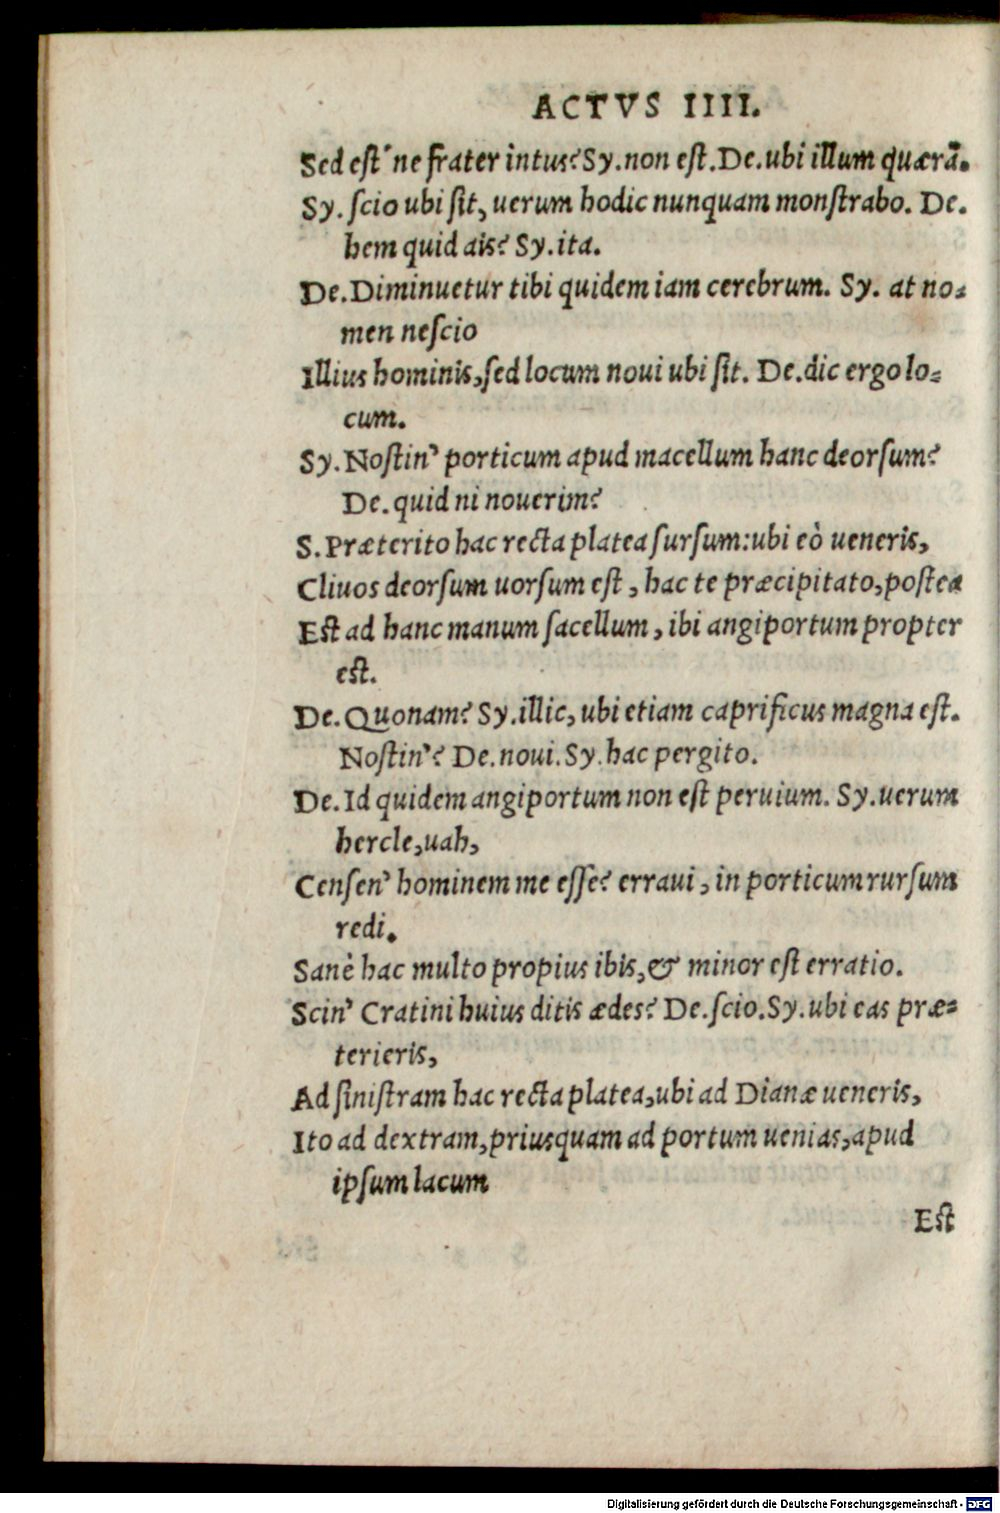 ACTVS IIII.
Sed est' ne frater intus? Sy. non est. De. ubi illum quærã.
Sy. scio ubi sit, uerum hodie nunquam monstrabo. De.
hem quid ais? Sy. ita.
De. Diminuetur tibi quidem iam cerebrum. Sy. at no-
men nescio
Illius hominis, sed locum noui ubi sit. De. dic ergo lo-
cum.
Sy. Nostin' porticum apud macellum hanc deorsum?
De. quid ni nouerim?
S. Præterito hac recta platea sursum: ubi eò ueneris,
Cliuos deorsum uorsum est, hac te præcipitato, postea
Est ad hanc manum sacellum, ibi angiportum propter
est.
De. Quonam? Sy. illic, ubi etiam caprificus magna est.
Nostin'? De. noui. Sy. hac pergito.
De. Id quidem angiportum non est peruium. Sy. uerum
hercle, uah,
Censen' hominem me esse? erraui, in porticum rursum
redi.
Sanè hac multo propius ibis, & minor est erratio.
Scin' Cratini huius ditis ædes? De. scio. Sy. ubi eas præ-
terieris,
Ad sinistram hac recta platea, ubi ad Dianæ ueneris,
Ito ad dextram, priusquam ad portum uenias, apud
ipsum lacum
Est
Digitalisierung gefördert durch die Deutsche Forschungsgemeinschaft - DFG